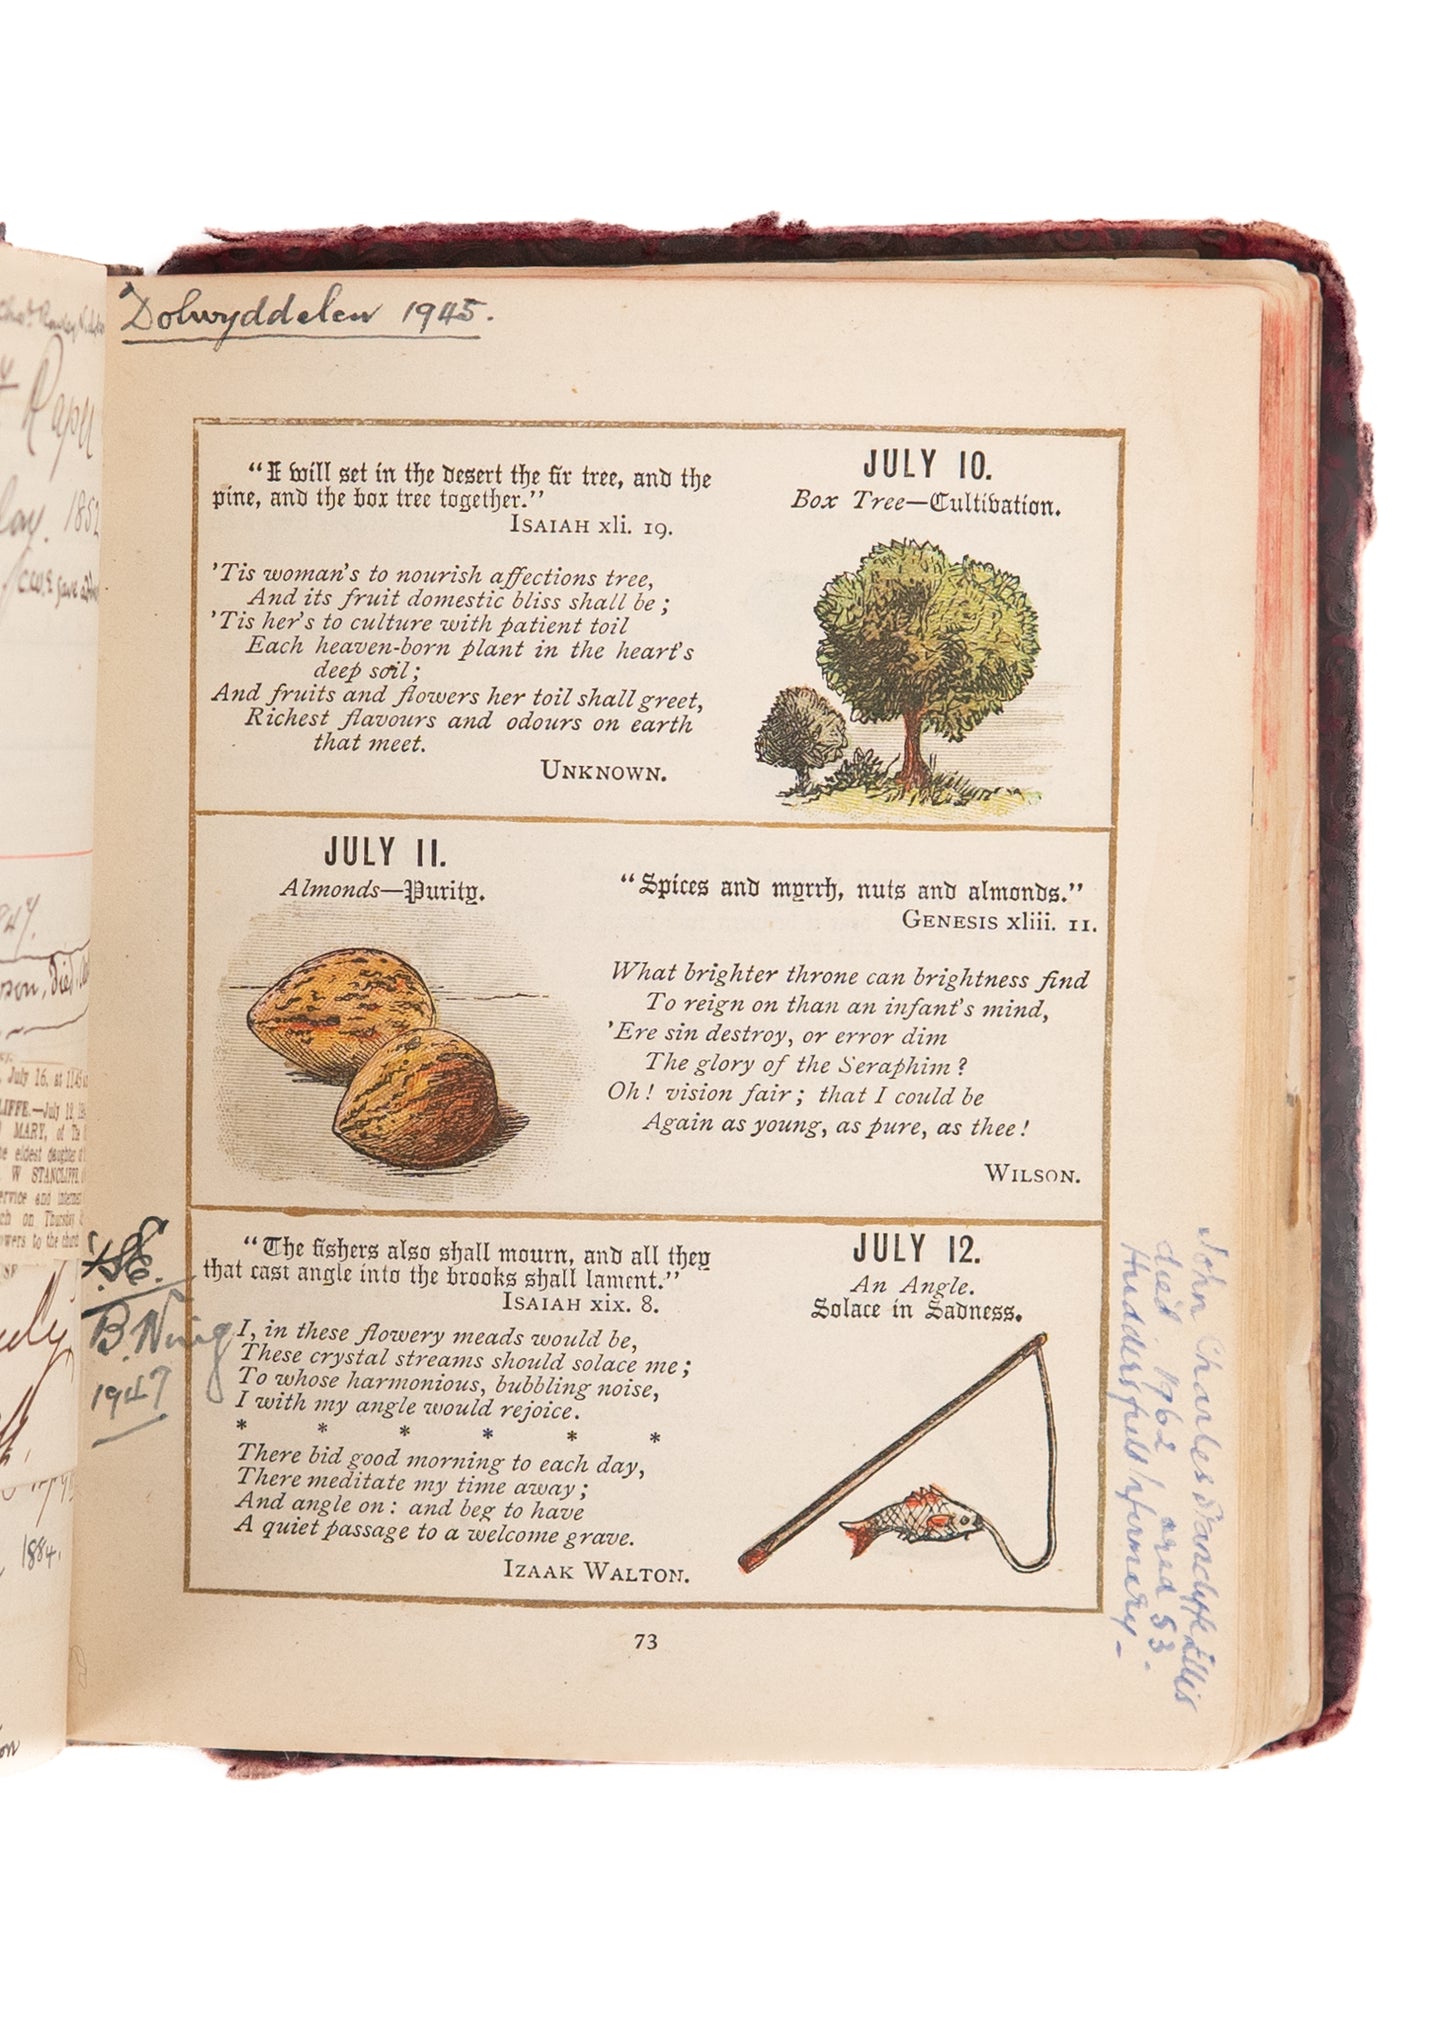 Dolwyddelen 1945.
"I will set in the desert the fir tree, and the
pine, and the box tree together."
ISAIAH xli. 19.
'Tis woman's to nourish affections tree,
And its fruit domestic bliss shall be ;
'Tis her's to culture with patient toil
Each heaven-born plant in the heart's
deep soil ;
And fruits and flowers her toil shall greet,
Richest flavours and odours on earth
that meet.
UNKNOWN.
JULY 10.
Box Tree—Cultivation.
JULY 11.
Almonds—Purity.
"Spices and myrrh, nuts and almonds."
GENESIS xliii. 11.
What brighter throne can brightness find
To reign on than an infant's mind,
'Ere sin destroy, or error dim
The glory of the Seraphim ?
Oh ! vision fair ; that I could be
Again as young, as pure, as thee !
WILSON.
"The fishers also shall mourn, and all they
that cast angle into the brooks shall lament."
ISAIAH xix. 8.
I, in these flowery meads would be,
These crystal streams should solace me ;
To whose harmonious, bubbling noise,
I with my angle would rejoice.
* * * * * *
There bid good morning to each day,
There meditate my time away ;
And angle on : and beg to have
A quiet passage to a welcome grave.
IZAAK WALTON.
JULY 12.
An Angle.
Solace in Sadness.
73
1947
John Charles Stancliffe Ellis
died 1962 aged 53.
Huddersfield Infirmary -
July 16. at 11.45
LIFFE.—July 12,
MARY, of
eldest daughter
W STANCLIFFE
service and
on Thursday
to the
1884.